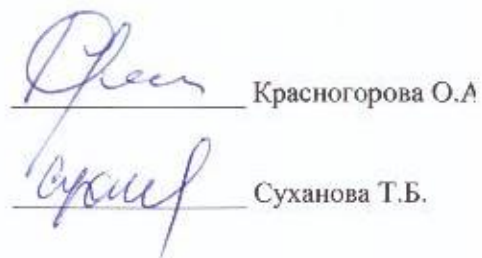 Красногорова О.А
Суханова Т.Б.